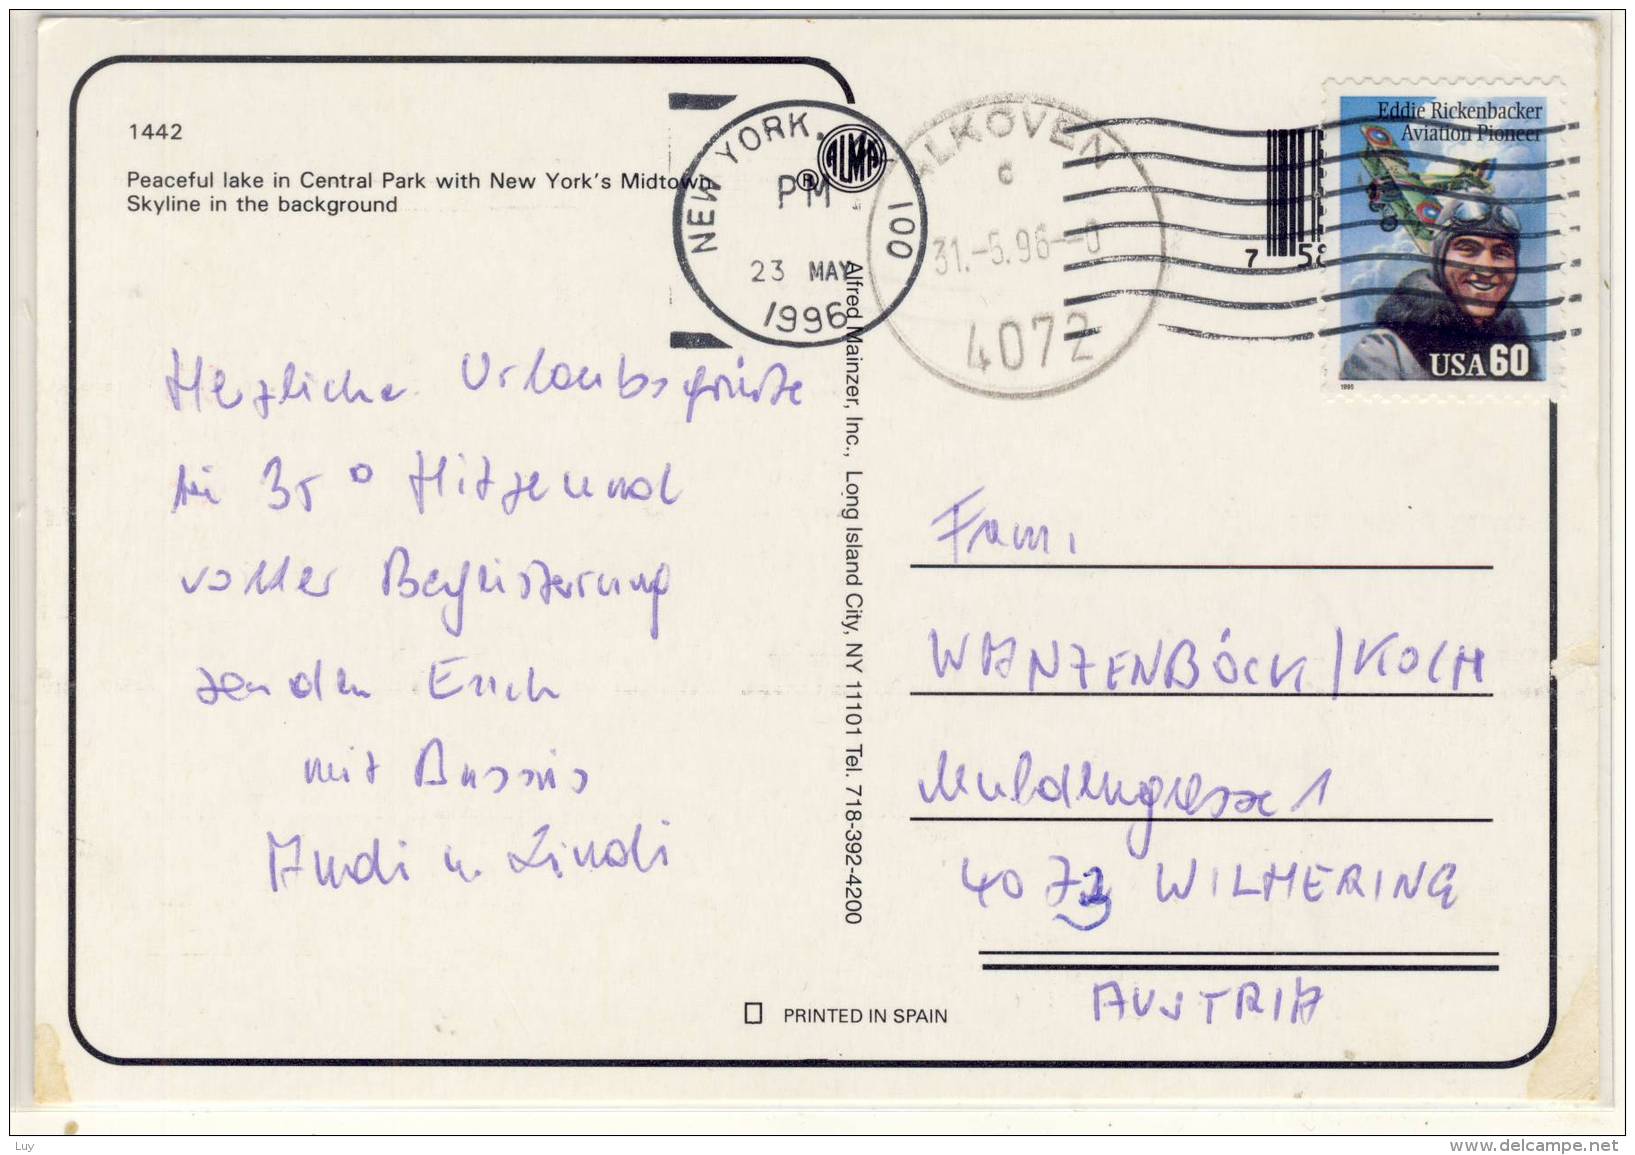 1442
Peaceful lake in Central Park with New York's Midtown
Skyline in the background
NEW YORK, 100
PM
23 MAY
1996
ALMA
®
ALKOVEN
c
31.-5.96--0
4072
Eddie Rickenbacker
Aviation Pioneer
USA 60
1995
7 58
Herzliche Urlaubsgrüße
bei 35° Hitze und
voller Begeisterung
senden Euch
mit Bussis
Andi u. Lindi
Alfred Mainzer, Inc., Long Island City, NY 11101 Tel. 718-392-4200
Fam.
WANZENBÖCK/KOCH
Muldengasse 1
4073 WILHERING
AUSTRIA
PRINTED IN SPAIN
Luy
www.delcampe.net